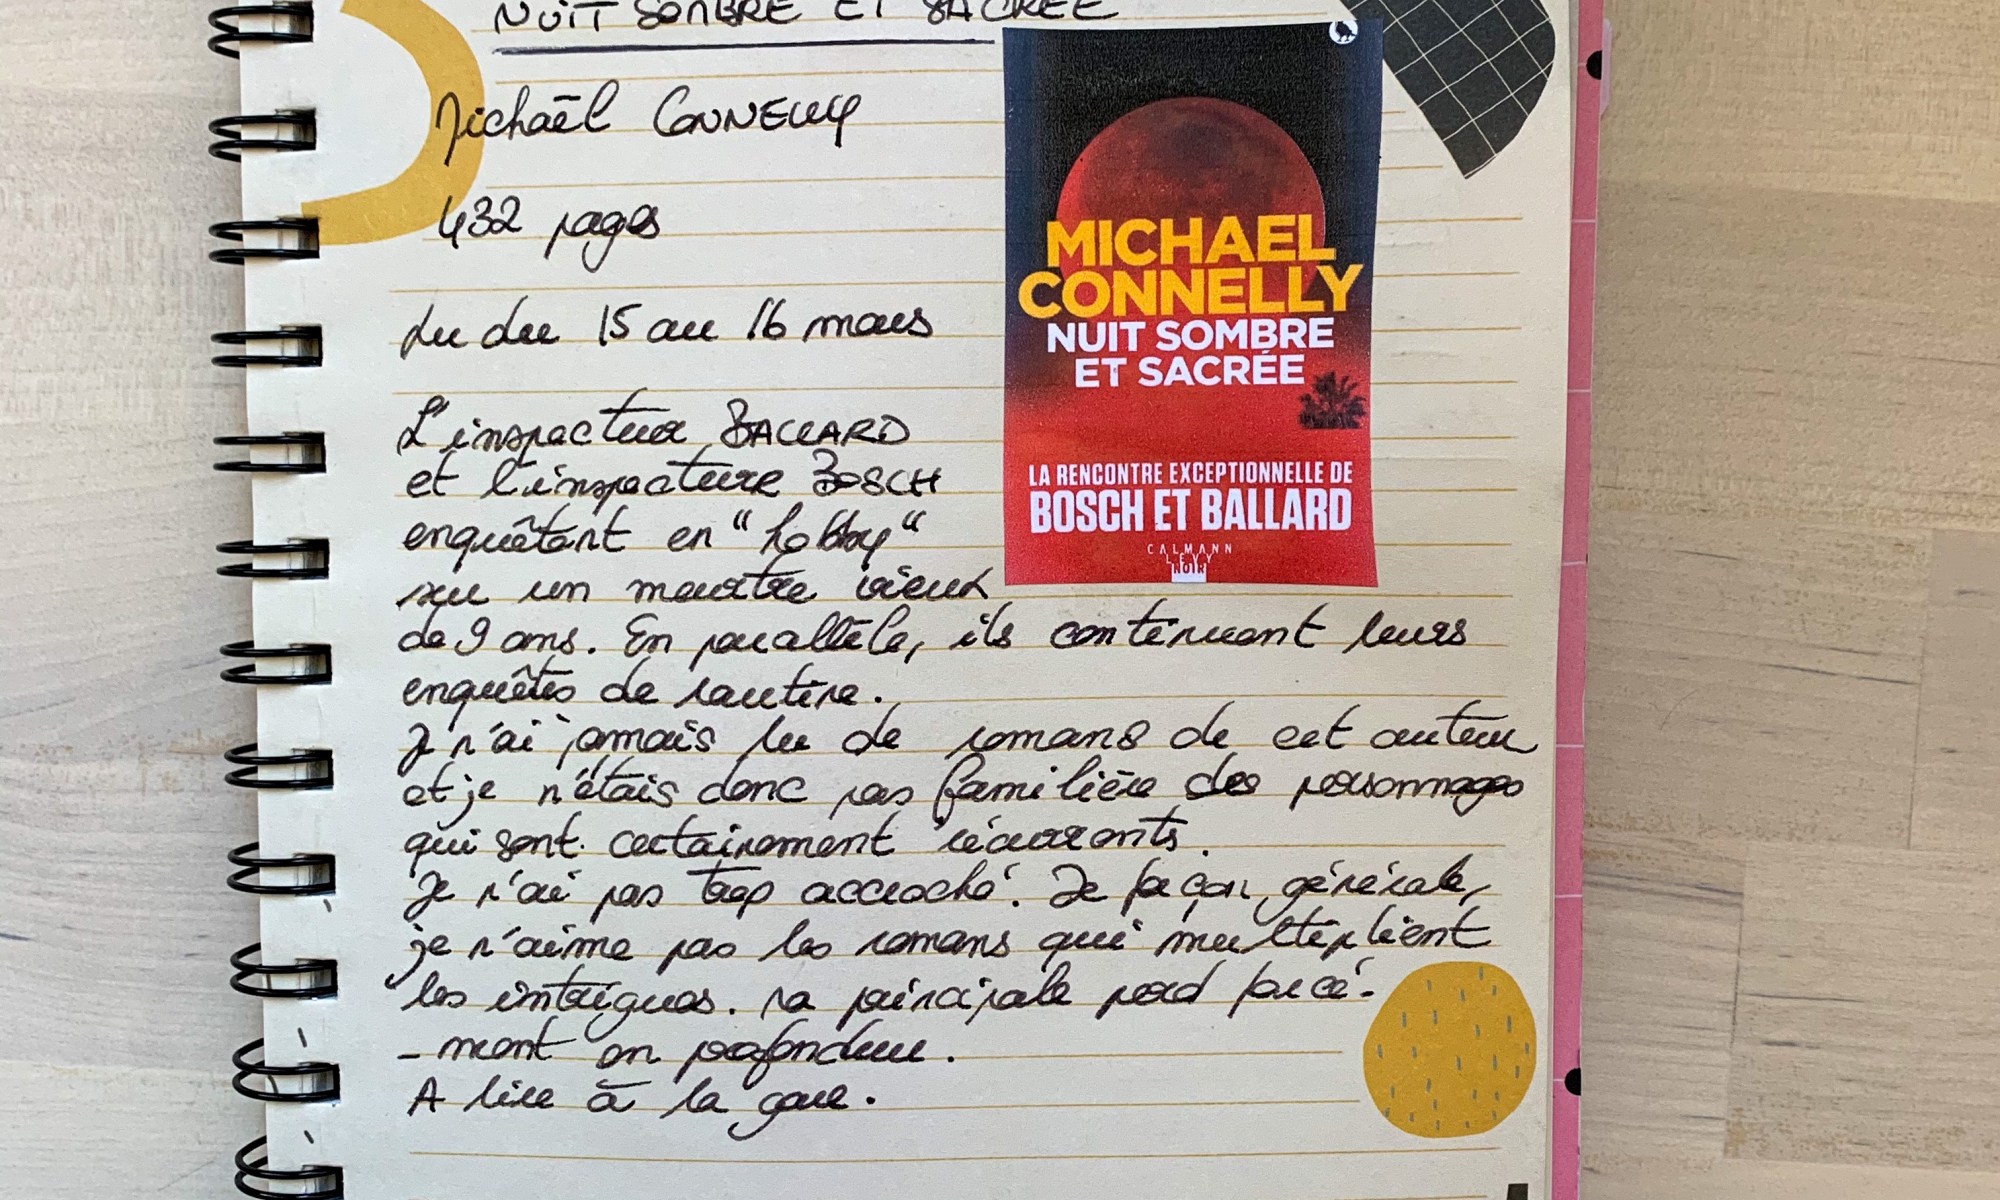 NUIT SOMBRE ET SACRÉE
Michaël CONNELLY
432 pages
Lu du 15 au 16 mars
L'inspecteur BALLARD
et l'inspecteure BOSCH
enquêtant en "hobby"
sur un meurtre vieux
de 9 ans. En parallèle, ils continuent leurs
enquêtes de routine.
Je n'ai jamais lu de romans de cet auteur
et je n'étais donc pas familière des personnages
qui sont certainement récurrents.
Je n'ai pas trop accroché. De façon générale,
je n'aime pas les romans qui multiplient
les intrigues. La principale perd forcé-
-ment en profondeur.
A lire à la gare.
MICHAEL
CONNELLY
NUIT SOMBRE
ET SACRÉE
LA RENCONTRE EXCEPTIONNELLE DE
BOSCH ET BALLARD
CALMANN
LÉVY
NOIR